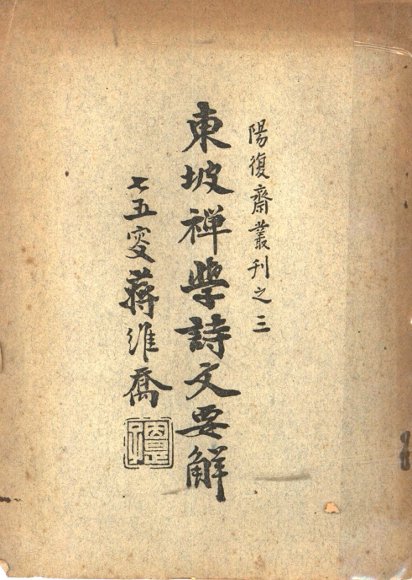 陽復齋叢刊之三
東坡禪學詩文要解
七五叜蔣維喬
因是子